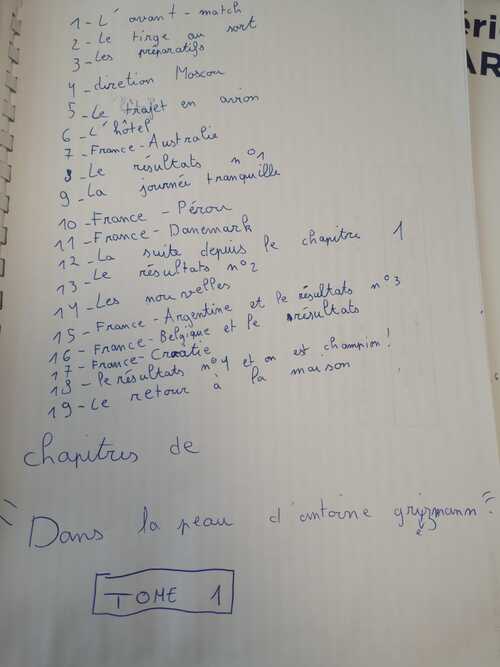 1 - L'avant - match
2 - Le tirge au sort
3 - Les préparatifs
4 - diretion Moscou
5 - Le trajet en avion
6 - L'hôtel
7 - France - Australie
8 - Le résultats n°1
9 - La journée tranquille
10 - France - Pérou
11 - France - Danemark
12 - La suite depuis le chapitre 1
13 - Le résultats n°2
14 - Les nouvelles
15 - France - Argentine et le résultats n°3
16 - France - Belgique et le résultats
17 - France - Croatie
18 - le résultats n°4 et on est champion!
19 - Le retour à la maison
chapitres de
"Dans la peau d'antoine griezmann"
TOME 1
éri
AR